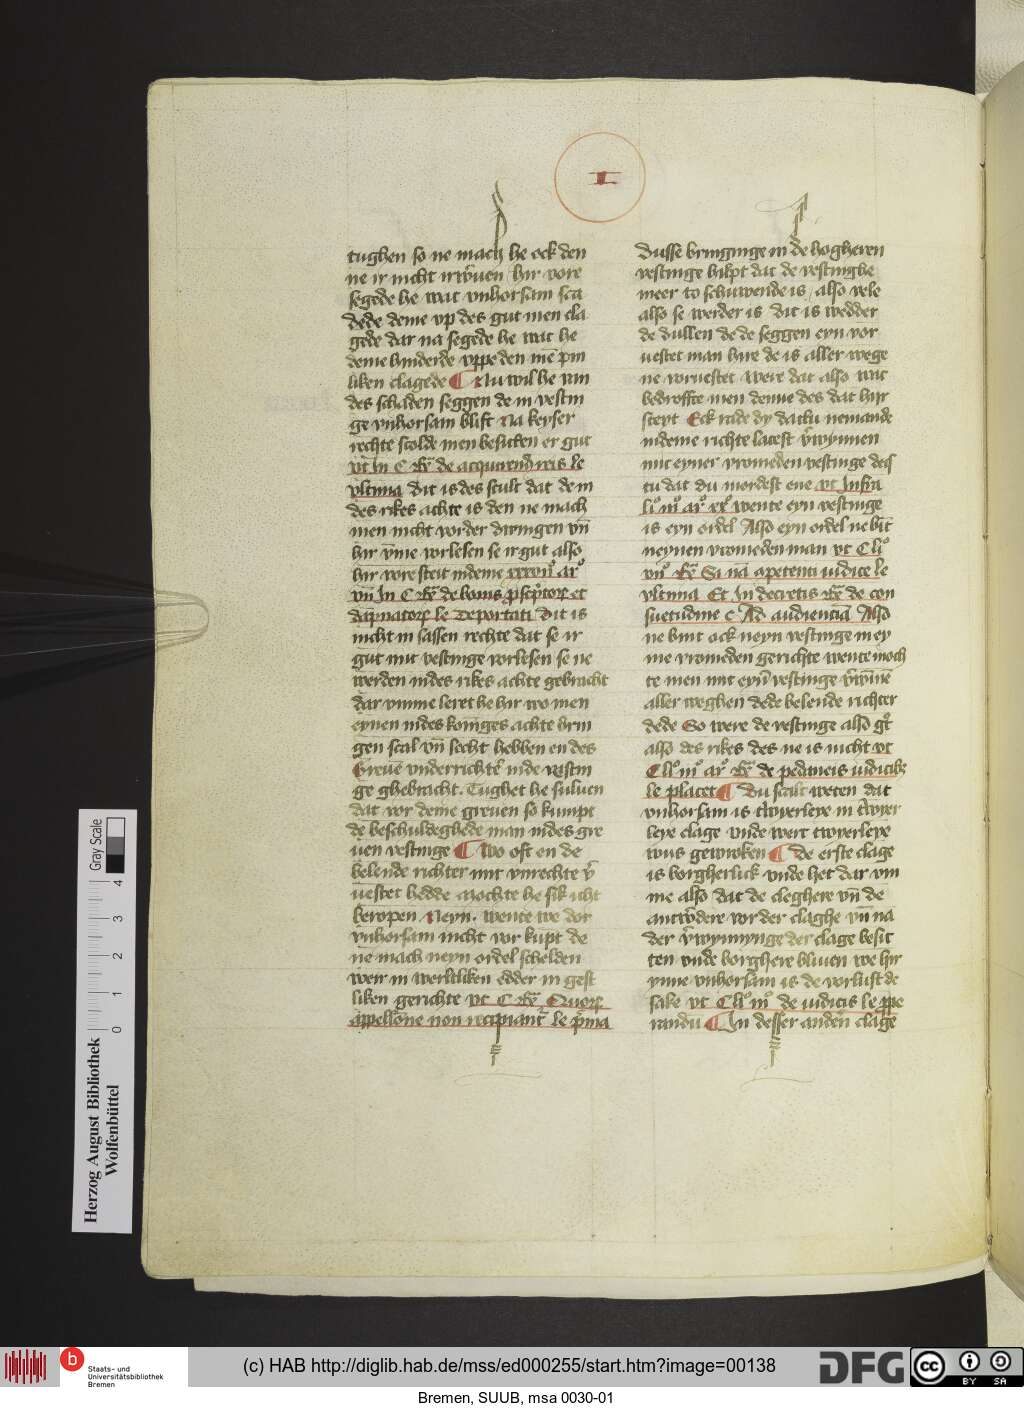 I
tughen so ne mach he ock den
ne ir nicht irweruen hir vore
segede he wat vnhorsam sca
dede deme vp des gut men cla
gede dar na segede he wat he
deme hinderde vppe den mē pin
liken clagede ¶ Nu wil he van
des schaden seggen de in vestin
ge vnhorsam blift Na keyser
rechte scolde men besitten er gut
vt In C de acquirend reis le
vltima dit is des scult dat dem
des rikes achte is den ne mach
men nicht vorder dwingen vn̄
hir vm̄e vorlesen se ir gut also
hir vore steit indeme xxxviiiᵒ arᵒ
vn̄ In C de bonis
le Deportati dit is
nicht in sassen rechte dat se ir
gut mit vestinge vorlesen se ne
werden indes rikes achte gebracht
dar vmme leret he hir wo men
eynen indes koninges achte brin
gen scal vn̄ secht hebben en des
Greuē vnderrichtēr inde vestin
ge ghebracht. Tughet he suluen
dat vor deme greuen so kumpt
de beschuldeghede man indes gre
uen vestinge ¶ Wo oft en de
belende richter mit vnrechte v̄
uestet hedde mochte he sik icht
beropen Neyn. wente we dor
vnhorsam nicht vor kumpt de
ne mach neyn ordel schelden
wer in werltliken edder in gest
liken gerichte vt C Quorum
appellōne non recipiant le p̄ma
Dusse bringinge in de hogheren
vestinge hilpt dat de vestinghe
meer to schuwende is / also vele
also se werder is dit is wedder
de dullen de de seggen eyn vor
uestet man hire de is aller wege
ne voruestet were dat also wat
bedroffte men denne des dat hir
steyt Eck rade dy dattu nemande
indeme richte latest v̄wynnen
mit eyner vromeden vestinge des
tu dat du mordest ene vt Infra
liᵒ iiiᵒ arᵒ wente eyn vestinge
is eyn ordel Also eyn ordel ne bīt
neynen vromeden man vt C liᵒ
Si nā apetenti iudice le
vltima Et In decretis de con
suetudine c Ad audienciā Also
ne bint ock neyn vestinge in ey
me vromeden gerichte wente moch
te men mit eyn̄ vestinge v̄wīnē
aller weghen dede belende richter
dede So were de vestinge also gᵗ
also des rikes des ne is nicht vt
C liᵒ iiiᵒ arᵒ de pedaneis iudicibz
le placet ¶ Du scalt weten dat
vnhorsam is twyerleye in twyer
leye clage vnde wert twyerleye
wus gewroken ¶ De erste clage
is borgherlick vnde het dar vm
me also dat de cleghere vn̄ de
antwerdere vor der claghe vn̄ na
der v̄wynnynge der clage besit
ten vnde borghere bliuen we hir
ynne vnhorsam is de vorlust de
sake vt C liᵒ iiiᵒ de iudicis le ppe
randū ¶ In desser anderen clage
Gray Scale
4
3
2
1
0
Herzog August Bibliothek
Wolfenbüttel
b
Staats- und
Universitätsbibliothek
Bremen
(c) HAB http://diglib.hab.de/mss/ed000255/start.htm?image=00138
DFG
cc
BY SA
Bremen, SUUB, msa 0030-01